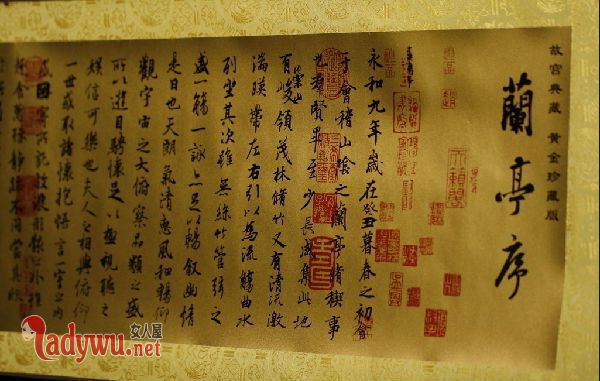 故宫典藏 黄金珍藏版
蘭亭序
永和九年歲在癸丑暮春之初會
于會稽山陰之蘭亭脩稧事
也群賢畢至少長咸集此地
有崇山峻領茂林脩竹又有清流激
湍暎帶左右引以為流觴曲水
列坐其次雖無絲竹管弦之
盛一觴一詠亦足以暢敘幽情
是日也天朗氣清惠風和暢仰
觀宇宙之大俯察品類之盛
所以遊目騁懷足以極視聽之
娛信可樂也夫人之相與俯仰
一世或取諸懷抱悟言一室之內
或因寄所託放浪形骸之外雖
趣舍萬殊靜躁不同當其欣
女人屋
Ladywu.net